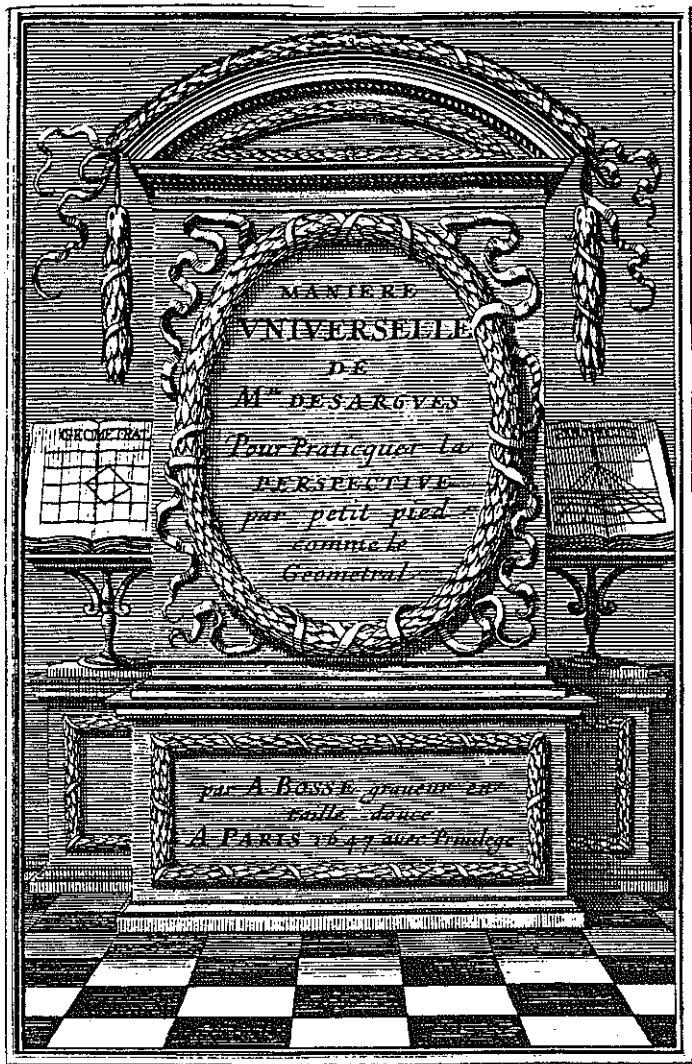 MANIERE
VNIVERSELLE
DE
Mr. DESARGVES
Pour Praticquer la
PERSPECTIVE
par petit pied
comme le
Geometral
GEOMETRAL
par A BOSSE graueur en
taille douce
A PARIS 1647 auec Priuilege